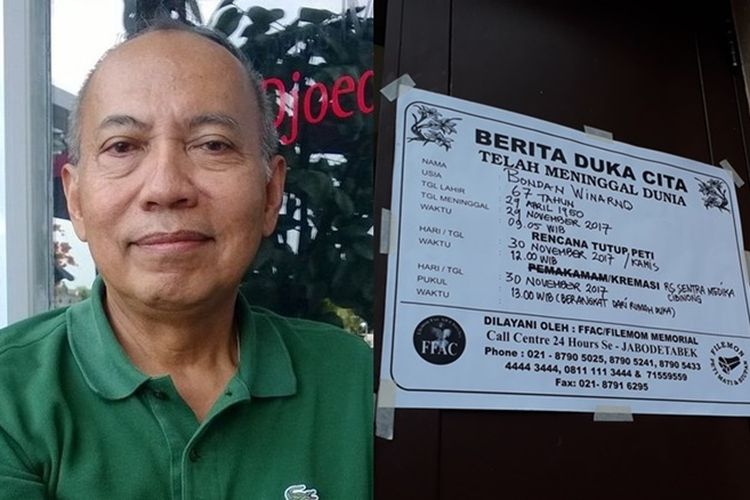 Djoed
BERITA DUKA CITA
TELAH MENINGGAL DUNIA
NAMA : BONDAN WINARNO
USIA : 67 TAHUN
TGL LAHIR : 29 APRIL 1950
TGL MENINGGAL : 29 NOVEMBER 2017
WAKTU : 09.05 WIB
RENCANA TUTUP PETI
HARI / TGL : 30 NOVEMBER 2017 / KAMIS
WAKTU : 12.00 WIB
PEMAKAMAM/KREMASI RS SENTRA MEDIKA CIBINONG
HARI / TGL : 30 NOVEMBER 2017
PUKUL
WAKTU : 13.00 WIB (BERANGKAT DARI RUMAH DUKA)
DILAYANI OLEH : FFAC/FILEMOM MEMORIAL
Call Centre 24 Hours Se - JABODETABEK
Phone : 021 - 8790 5025, 8790 5241, 8790 5433
4444 3444, 0811 111 3444 & 71559559
Fax: 021- 8791 6295
FFAC
FILEMOM